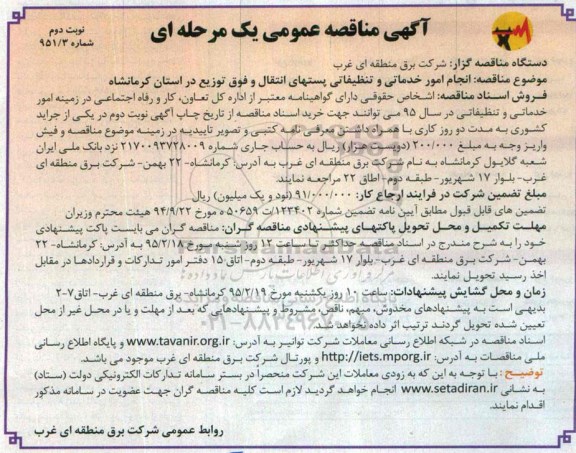 آگهی مناقصه عمومی یک مرحله ای
نوبت دوم
شماره ۹۵۱/۳
دستگاه مناقصه گزار: شرکت برق منطقه ای غرب
موضوع مناقصه: انجام امور خدماتی و تنظیفاتی پستهای انتقال و فوق توزیع در استان کرمانشاه
فروش اسناد مناقصه: اشخاص حقوقی دارای گواهینامه معتبر از اداره کل تعاون، کار و رفاه اجتماعی در زمینه امور
خدماتی و تنظیفاتی در سال ۹۵ می توانند جهت خرید اسناد مناقصه از تاریخ چاپ آگهی نوبت دوم در یکی از جراید
کشوری به مدت دو روز کاری با همراه داشتن معرفی نامه کتبی و تصویر تاییدیه در زمینه موضوع مناقصه و فیش
واریز وجه به مبلغ ۲۰۰/۰۰۰ (دویست هزار) ریال به حساب جاری شماره ۲۱۷۰۰۹۳۷۲۸۰۰۹ نزد بانک ملی ایران
شعبه گلایول کرمانشاه به نام شرکت برق منطقه ای غرب به آدرس: کرمانشاه- ۲۲ بهمن- شرکت برق منطقه ای
غرب- بلوار ۱۷ شهریور- طبقه دوم- اطاق ۲۲ مراجعه نمایند.
مبلغ تضمین شرکت در فرایند ارجاع کار: ۹۱/۰۰۰/۰۰۰ (نود و یک میلیون) ریال
تضمین های قابل قبول مطابق آیین نامه تضمین شماره ۱۲۳۴۰۲/ت ۵۰۶۵۹ ه مورخ ۹۴/۹/۲۲ هیئت محترم وزیران
مهلت تکمیل و محل تحویل پاکتهای پیشنهادی مناقصه گران: مناقصه گران می بایست پاکت پیشنهادی
خود را به شرح مندرج در اسناد مناقصه حداکثر تا ساعت ۱۲ روز شنبه مورخ ۹۵/۲/۱۸ به آدرس: کرمانشاه- ۲۲
بهمن- شرکت برق منطقه ای غرب- بلوار ۱۷ شهریور- طبقه دوم- اتاق ۱۵ دفتر امور تدارکات و قراردادها در مقابل
اخذ رسید تحویل نمایند.
زمان و محل گشایش پیشنهادات: ساعت ۱۰ روز یکشنبه مورخ ۹۵/۲/۱۹ کرمانشاه- برق منطقه ای غرب- اتاق ۷-۲
بدیهی است به پیشنهادهای مخدوش، مبهم، ناقص، مشروط و پیشنهادهایی که بعد از مهلت و یا در محل غیر از محل
تعیین شده تحویل گردند ترتیب اثر داده نخواهد شد.
اسناد مناقصه در شبکه اطلاع رسانی معاملات شرکت توانیر به آدرس: www.tavanir.org.ir و پایگاه اطلاع رسانی
ملی مناقصات به آدرس: http://iets.mporg.ir و پورتال شرکت برق منطقه ای غرب موجود می باشد.
توضیح: با توجه به این که به زودی معاملات این شرکت منحصراً در بستر سامانه تدارکات الکترونیکی دولت (ستاد)
به نشانی www.setadiran.ir انجام خواهد گردید لازم است کلیه مناقصه گران جهت عضویت در سامانه مذکور
اقدام نمایند.
روابط عمومی شرکت برق منطقه ای غرب